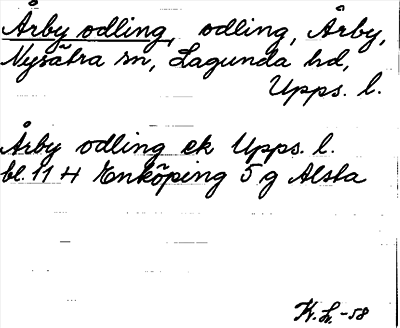 Årby odling, odling, Årby,
Nysätra sn, Lagunda hd,
Upps. l.
Årby odling ek Upps. l.
bl. 114 Enköping 5 g Alsta
K. L. -58